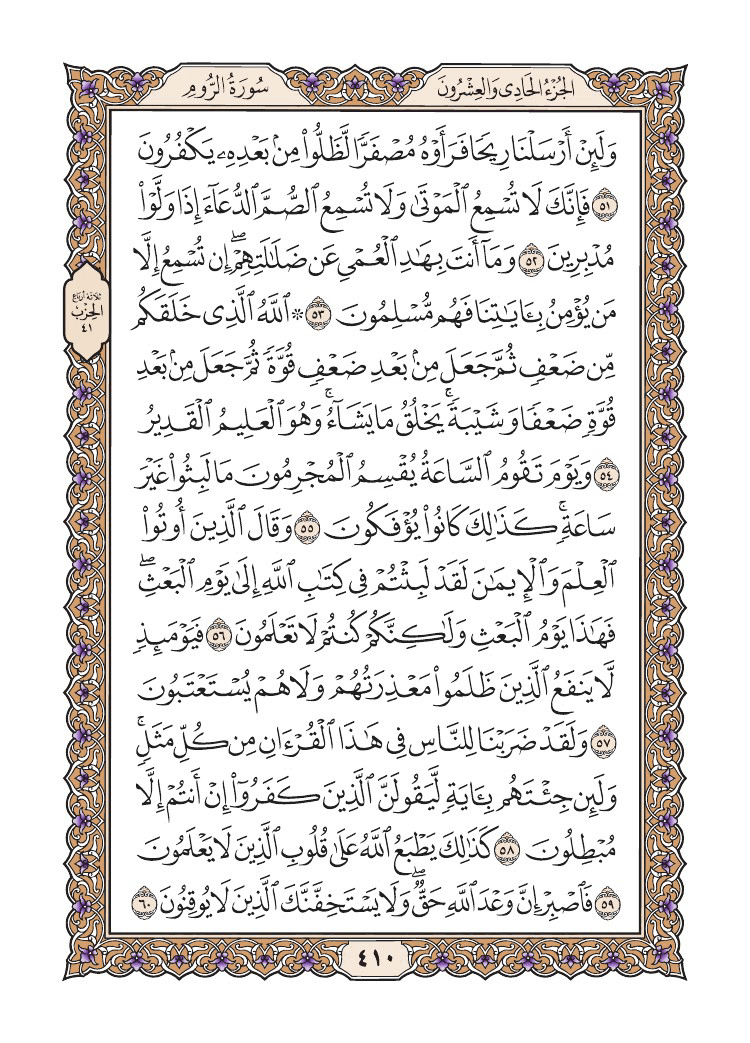 الجُزْءُ الحَادِي وَالعِشْرُونَ
سُورَةُ الرُّومِ
وَلَئِنْ أَرْسَلْنَا رِيحًا فَرَأَوْهُ مُصْفَرًّا لَّظَلُّوا۟ مِنۢ بَعْدِهِۦ يَكْفُرُونَ
٥١ فَإِنَّكَ لَا تُسْمِعُ ٱلْمَوْتَىٰ وَلَا تُسْمِعُ ٱلصُّمَّ ٱلدُّعَآءَ إِذَا وَلَّوْا۟
مُدْبِرِينَ ٥٢ وَمَآ أَنتَ بِهَٰدِ ٱلْعُمْىِ عَن ضَلَٰلَتِهِمْۖ إِن تُسْمِعُ إِلَّا
مَن يُؤْمِنُ بِـَٔايَٰتِنَا فَهُم مُّسْلِمُونَ ٥٣ * ٱللَّهُ ٱلَّذِى خَلَقَكُم
مِّن ضَعْفٍ ثُمَّ جَعَلَ مِنۢ بَعْدِ ضَعْفٍ قُوَّةً ثُمَّ جَعَلَ مِنۢ بَعْدِ
قُوَّةٍ ضَعْفًا وَشَيْبَةًۚ يَخْلُقُ مَا يَشَآءُۚ وَهُوَ ٱلْعَلِيمُ ٱلْقَدِيرُ
٥٤ وَيَوْمَ تَقُومُ ٱلسَّاعَةُ يُقْسِمُ ٱلْمُجْرِمُونَ مَا لَبِثُوا۟ غَيْرَ
سَاعَةٍۚ كَذَٰلِكَ كَانُوا۟ يُؤْفَكُونَ ٥٥ وَقَالَ ٱلَّذِينَ أُوتُوا۟
ٱلْعِلْمَ وَٱلْإِيمَٰنَ لَقَدْ لَبِثْتُمْ فِى كِتَٰبِ ٱللَّهِ إِلَىٰ يَوْمِ ٱلْبَعْثِۖ
فَهَٰذَا يَوْمُ ٱلْبَعْثِ وَلَٰكِنَّكُمْ كُنتُمْ لَا تَعْلَمُونَ ٥٦ فَيَوْمَئِذٍ
لَّا يَنفَعُ ٱلَّذِينَ ظَلَمُوا۟ مَعْذِرَتُهُمْ وَلَا هُمْ يُسْتَعْتَبُونَ
٥٧ وَلَقَدْ ضَرَبْنَا لِلنَّاسِ فِى هَٰذَا ٱلْقُرْءَانِ مِن كُلِّ مَثَلٍۚ
وَلَئِن جِئْتَهُم بِـَٔايَةٍ لَّيَقُولَنَّ ٱلَّذِينَ كَفَرُوٓا۟ إِنْ أَنتُمْ إِلَّا
مُبْطِلُونَ ٥٨ كَذَٰلِكَ يَطْبَعُ ٱللَّهُ عَلَىٰ قُلُوبِ ٱلَّذِينَ لَا يَعْلَمُونَ
٥٩ فَٱصْبِرْ إِنَّ وَعْدَ ٱللَّهِ حَقٌّۖ وَلَا يَسْتَخِفَّنَّكَ ٱلَّذِينَ لَا يُوقِنُونَ ٦٠
ثلاثة أرباع
الحِزْب
٤١
٤١٠